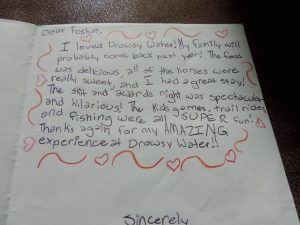 Dear Foshas,
I loved Drowsy Water! My family will
probably come back next year! The food
was delicious, all of the horses were
really sweet, and I had a great stay!
The skit and awards night was spectacular
and hilarious! The kids games, trail rides
and fishing were all SUPER fun!
Thanks again for my AMAZING
experience at Drowsy Water!!
Sincerely